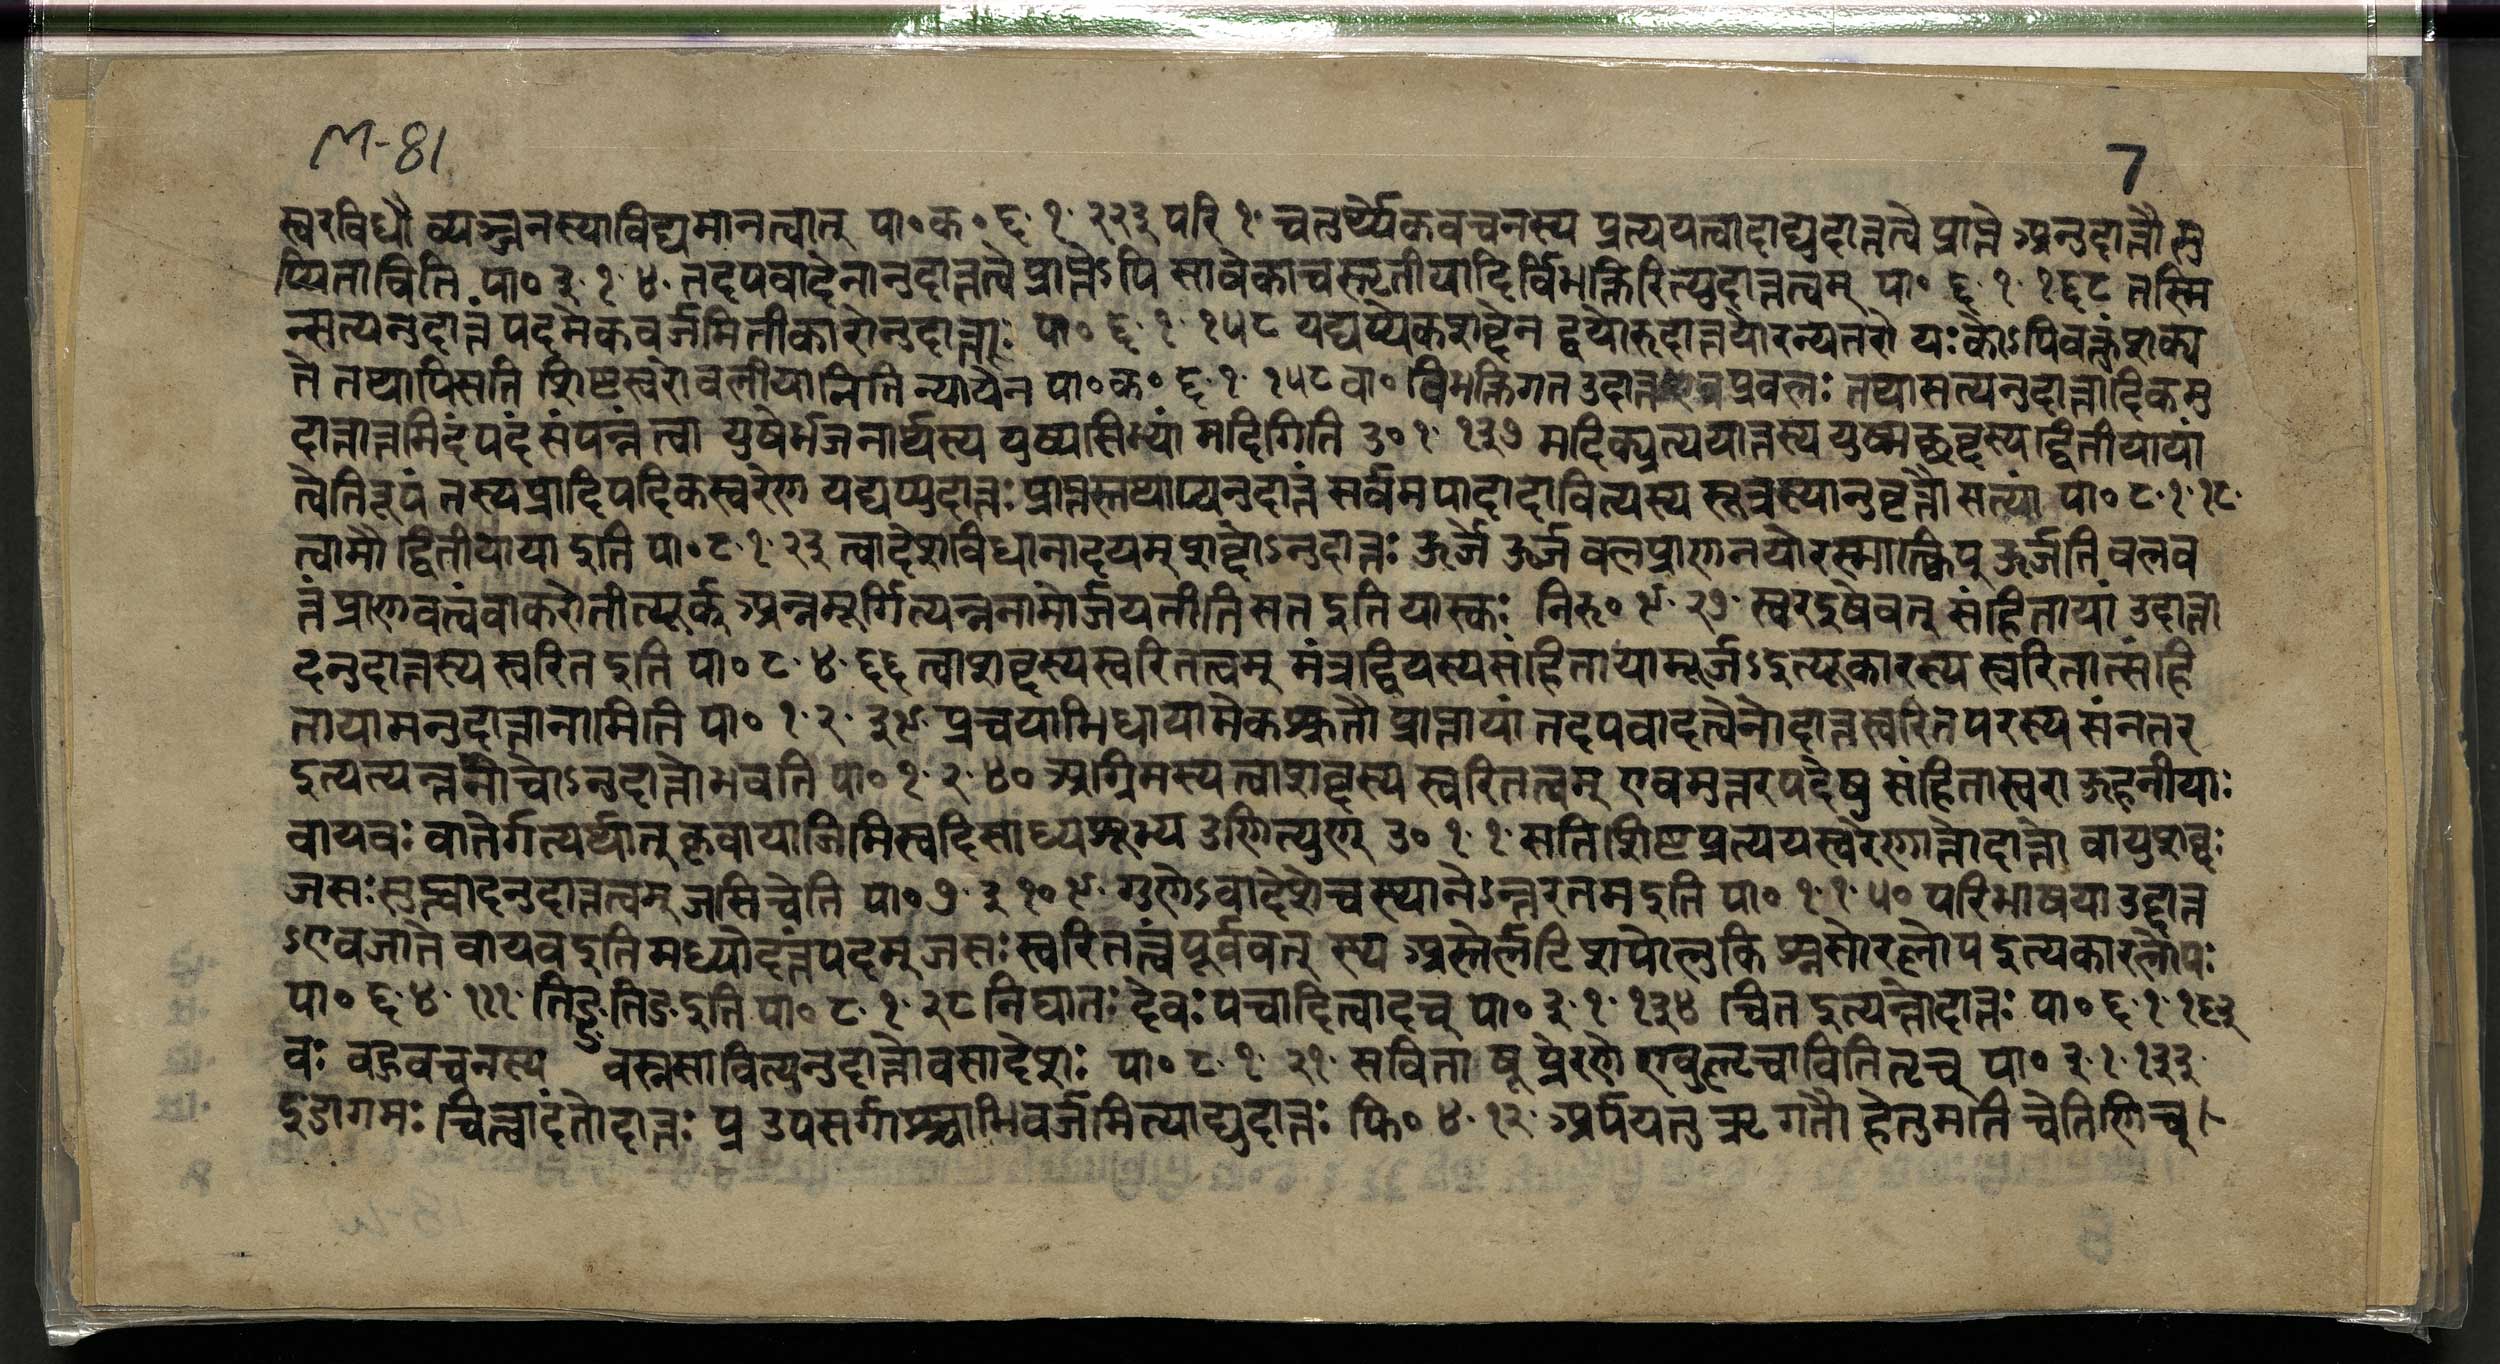 M-81
7
स्वरविधौ व्यञ्जनस्याविद्यमानत्वात् पा॰क॰ ६·१·२२३ परि १· चतुर्थ्येकवचनस्य प्रत्ययत्वादाद्युदात्तत्वे प्राप्ते अनुदात्तौ सु
प्पिताविति पा॰ ३·१·४· तदपवादेनानुदात्तत्वे प्राप्तेऽपि सावेकाचस्तृतीयादिर्विभक्तिरित्युदात्तत्वम् पा॰ ६·१·१६८ तस्मि
न्सत्यनुदात्तं पदमेकवर्जमितीकारोनुदात्तः पा॰ ६·१·१५८ यद्यप्येकशब्देन द्वयोरुदात्तयोरन्यतरो यःकोऽपिवक्तुंशक्य
ते तथापिसति शिष्टस्वरोवलीयानिति न्यायेन पा॰क॰ ६·१·१५८वा॰ विभक्तिगत उदात्त एव प्रवलः तथासत्यनुदात्तादिकमु
दात्तान्तमिदंपदं संपन्नं त्वा युषेर्भजनार्थस्य युष्यसिभ्यां मदिगिति उ॰१·१३७ मदिक्प्रत्ययान्तस्य युष्मच्छब्दस्य द्वितीयायां
त्वेतिरूपं तस्यप्रादिपदिकस्वरेण यद्यप्युदात्तः प्राप्तस्तथाप्यनुदात्तं सर्वमपादादावित्यस्य सूत्रस्यानुवृत्तौ सत्यां पा॰ ८·१·१८·
त्वामौ द्वितीयाया इति पा॰८·१·२३ त्वादेशविधानादयम् शब्दोऽनुदात्तः ऊर्जे ऊर्ज वलप्राणनयोरस्मात्क्विप् ऊर्जति वलव
न्तं प्राणवत्वंवाकरोतीत्यूर्क् अन्नमूर्गित्यन्ननामोर्जयतीतिसत इति यास्कः निरु॰९·२७· स्वरइषेवत् संहितायां उदात्ता
दनुदात्तस्य स्वरित इति पा॰ ८·४·६६ त्वाशब्दस्यस्वरितत्वम् मंत्रद्वियस्यसंहितायामूर्जऽइत्यूकारस्य स्वरितात्संहि
तायामनुदात्तानामिति पा॰ १·२·३९· प्रचयाभिधायामेकश्रुतौ प्राप्तायां तदपवादत्वेनोदात्तस्वरितपरस्य संनतर
इत्यत्यन्तनीचोऽनुदात्तोभवति पा॰१·२·४० अग्रिमस्यत्वाशब्दस्य स्वरितत्वम् एवमुत्तरपदेषु संहितास्वरा ऊहनीयाः
वायवः वातेर्गत्यर्थात् कृवापाजिमिस्वदिसाध्यशूभ्य उणित्युण् उ॰१·१·सतिशिष्टप्रत्ययस्वरेणान्तोदात्तो वायुशब्दः
जसःसुप्त्वादनुदात्तत्वम् जसिचेति पा॰७·३१०९· गुणेऽवादेशेचस्थानेऽन्तरतमइति पा॰ १·१·५० परिभाषया उदात्त
ऽएवजाते वायवइति मध्योदत्तंपदम् जसः स्वरितत्वं पूर्ववत् स्थ अस्तेर्लटिशपोलुकि श्नसोरल्लोप इत्यकारलोपः
पा॰ ६·४·१११· तिङ्ङतिङइति पा॰ ८·१·२८निघातः देवः पचादित्वादच् पा॰३·१·१३४ चित इत्यन्तोदात्तः पा॰६·१·१६३
वः वहुवचनस्य वस्नसावित्यनुदात्तोवसादेशः पा॰ ८·१·२१· सविता षू प्रेरणे ण्वुल्तृचाविति तृच् पा॰३·१·१३३·
इडागमः चित्त्वादंतोदात्तः प्र उपसर्गाश्चाभिवर्जमित्याद्युदात्तः फि॰४·१२· अर्पयतु ऋ गतौ हेतुमति चेतिणिच्।